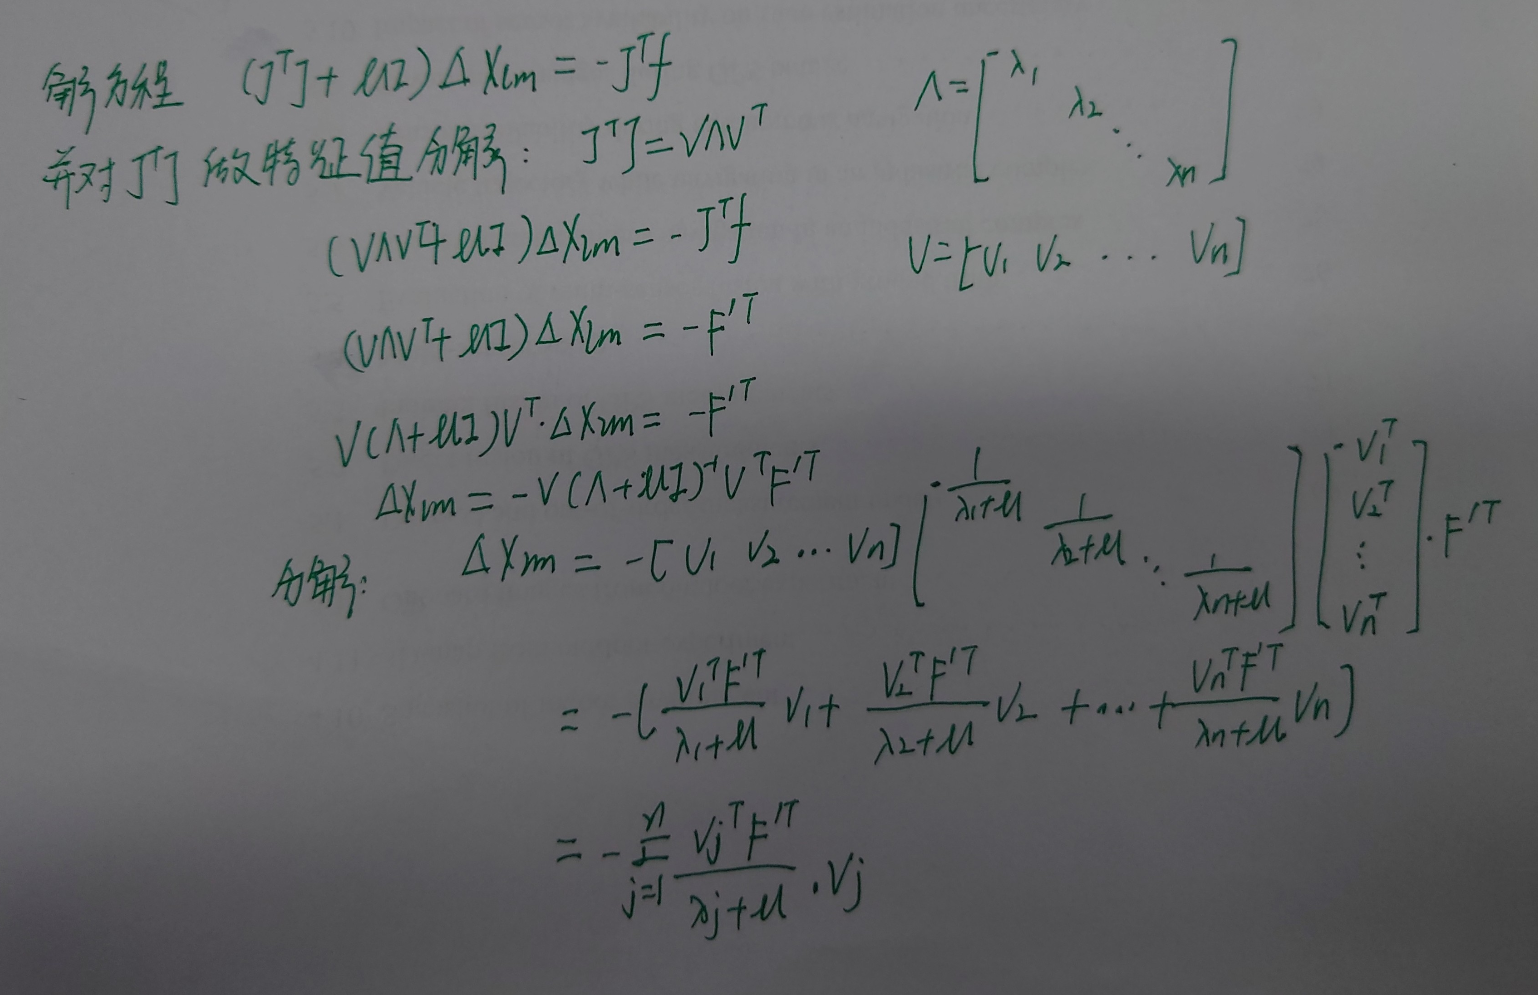 解方程 (JᵀJ + μI) Δx_lm = -Jᵀf
Λ = [λ₁ λ₂ ⋱ λn]
并对JᵀJ做特征值分解: JᵀJ = VΛVᵀ
(VΛVᵀ + μI) Δx_lm = -Jᵀf
V = [V₁ V₂ ... Vn]
(VΛVᵀ + μI) Δx_lm = -F'ᵀ
V(Λ + μI)Vᵀ · Δx_lm = -F'ᵀ
Δx_lm = -V(Λ + μI)⁻¹VᵀF'ᵀ
分解: Δx_lm = -[V₁ V₂ ... Vn] [1/(λ₁+μ) 1/(λ₂+μ) ⋱ 1/(λn+μ)] [V₁ᵀ V₂ᵀ ⋮ Vnᵀ] · F'ᵀ
= -(V₁ᵀF'ᵀ/(λ₁+μ) V₁ + V₂ᵀF'ᵀ/(λ₂+μ) V₂ + ... + VnᵀF'ᵀ/(λn+μ) Vn)
= -Σⁿⱼ₌₁ VⱼᵀF'ᵀ/(λⱼ+μ) · Vⱼ